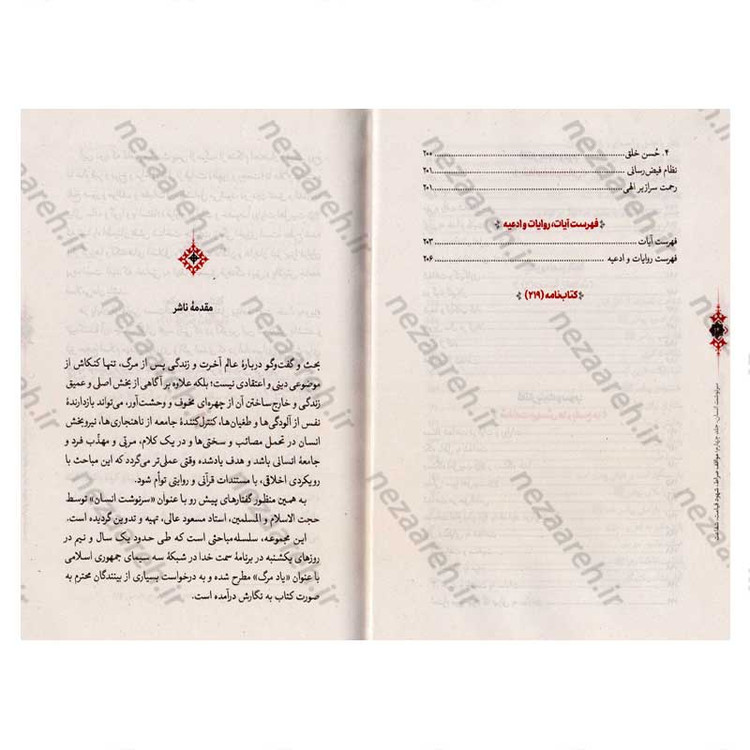 ۴. حُسن خلق ... ۲۰۰
نظام فیض‌رسانی ... ۲۰۱
رحمت سرازیر الهی ... ۲۰۱
فهرست آیات، روایات و ادعیه
فهرست آیات ... ۲۰۳
فهرست روایات و ادعیه ... ۲۰۶
کتابنامه (۲۱۹)
سرنوشت انسان، جلد چهارم: مواقف، صراط، شهود قیامت، شفاعت
مقدمهٔ ناشر
بحث و گفت‌وگو دربارهٔ عالم آخرت و زندگی پس از مرگ، تنها کنکاش از
موضوعی دینی و اعتقادی نیست؛ بلکه علاوه بر آگاهی از بخش اصلی و عمیق
زندگی و خارج‌ساختن آن از چهره‌ای مخوف و وحشت‌آور، می‌تواند بازدارندهٔ
نفس از آلودگی‌ها و طغیان‌ها، کنترل‌کنندهٔ جامعه از ناهنجاری‌ها، نیروبخش
انسان در تحمل مصائب و سختی‌ها و در یک کلام، مربّی و مهذّب فرد و
جامعهٔ انسانی باشد و هدف یادشده وقتی عملی‌تر می‌گردد که این مباحث با
رویکردی اخلاقی، با مستندات قرآنی و روایتی توأم شود.
به همین منظور گفتارهای پیش رو با عنوان «سرنوشت انسان» توسط
حجت الاسلام و المسلمین، استاد مسعود عالی، تهیه و تدوین گردیده است.
این مجموعه، سلسله‌مباحثی است که طی حدود یک سال و نیم در
روزهای یکشنبه در برنامهٔ سمت خدا در شبکهٔ سه سیمای جمهوری اسلامی
با عنوان «یاد مرگ» مطرح شده و به درخواست بسیاری از بینندگان محترم به
صورت کتاب به نگارش درآمده است.
nezaareh.ir
nezaareh.ir
nezaareh.ir
nezaareh.ir
nezaareh.ir
nezaareh.ir